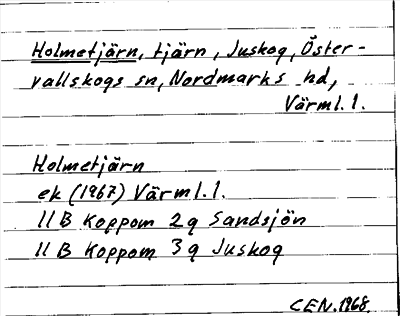 Holmetjärn, tjärn, Juskog, Öster-
vallskogs sn, Nordmarks hd,
Värml.l.
Holmetjärn
ek (1967) Värml.l.
11 B Koppom 2g Sandsjön
11 B Koppom 3g Juskog
CEN.1968.